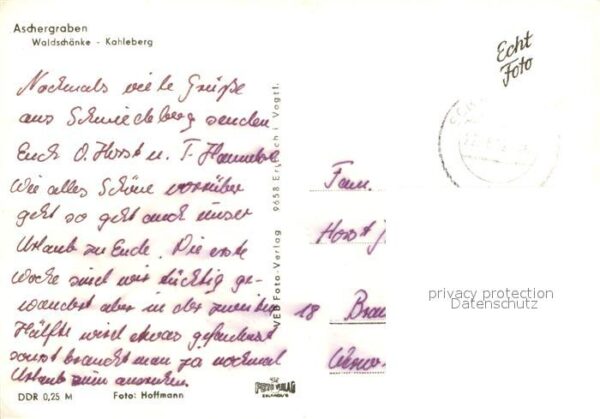 Aschergraben
Waldschänke - Kahleberg
Echt
Foto
Nochmals viele Grüße
aus Schmiedeberg senden
Euch O. Horst u. T. Hannelore
Wie alles Schöne vorrüber
geht so geht auch unser
Urlaub zu Ende. Die erste
Woche sind wir tüchtig ge-
wandert aber in der zweiten
Hälfte wird etwas gefaulenzt
sonst braucht man ja nochmal
Urlaub zum ausruhen.
VEB Foto-Verlag 9658 Erlbach i. Vogtl.
Fam.
Horst
18
privacy protection
Datenschutz
DDR 0,25 M
Foto: Hoffmann
FOTO VERLAG
ERLBACH/V